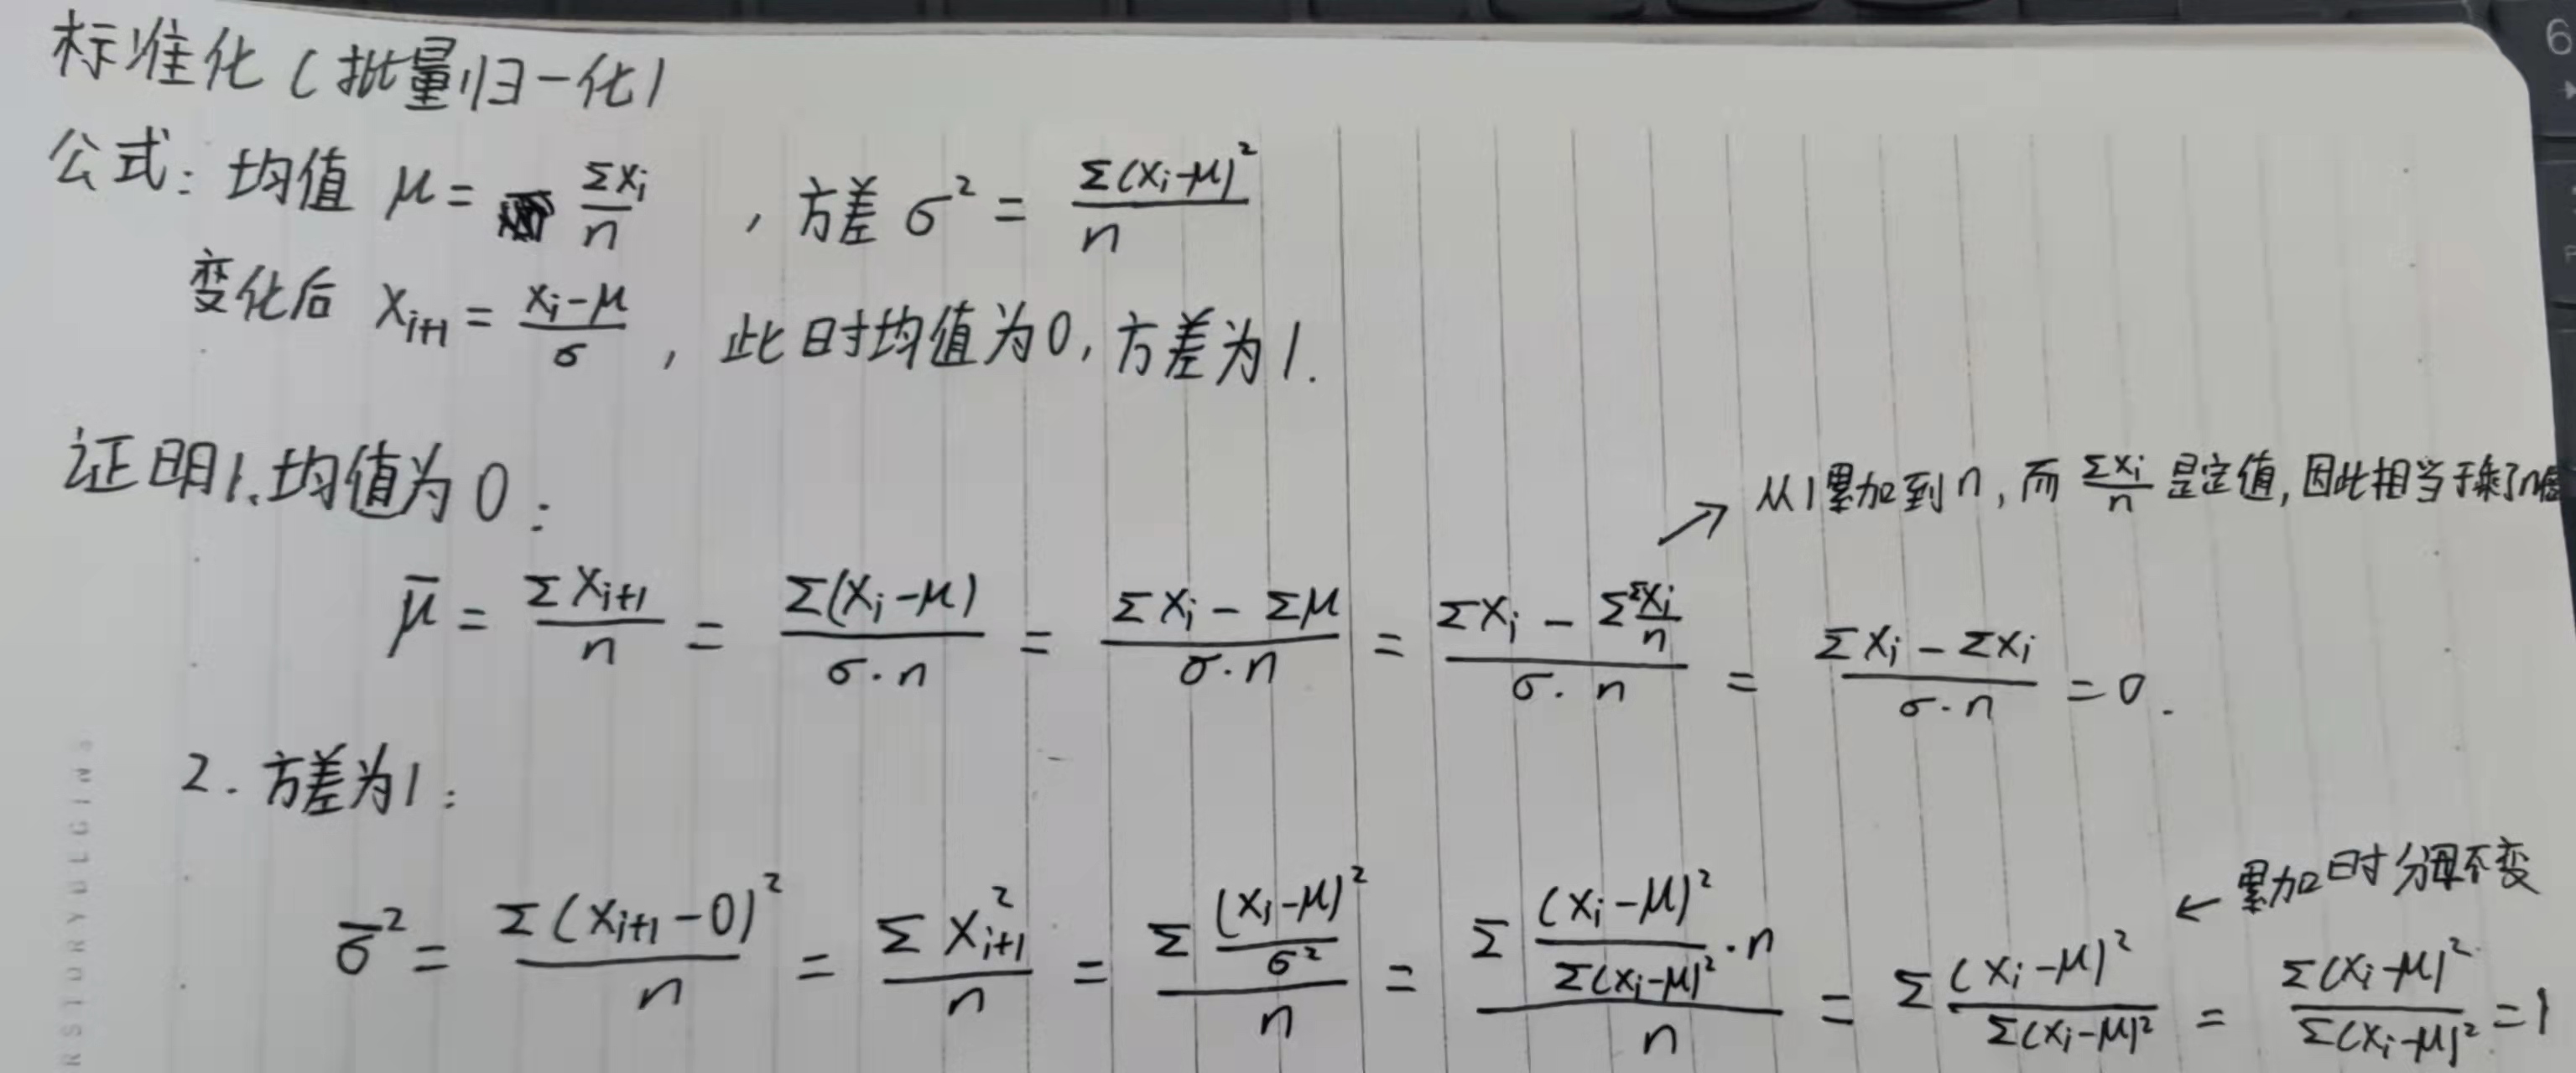 标准化（批量归一化）
公式：均值 μ = Σxᵢ/n ，方差 σ² = Σ(xᵢ-μ)²/n
变化后 xᵢ₊₁ = (xᵢ-μ)/σ ，此时均值为0，方差为1.
证明1.均值为0：
从1累加到n，而 Σxᵢ/n 是定值，因此相当于乘了n
μ̄ = Σxᵢ₊₁/n = Σ(xᵢ-μ)/(σ·n) = (Σxᵢ - Σμ)/(σ·n) = (Σxᵢ - Σ(Σxᵢ/n))/(σ·n) = (Σxᵢ - Σxᵢ)/(σ·n) = 0.
2. 方差为1：
← 累加时分母不变
σ̄² = Σ(xᵢ₊₁-0)²/n = Σxᵢ₊₁²/n = (Σ (xᵢ-μ)²/σ²)/n = (Σ (xᵢ-μ)²/Σ(xᵢ-μ)² · n)/n = Σ (xᵢ-μ)²/Σ(xᵢ-μ)² = Σ(xᵢ-μ)²/Σ(xᵢ-μ)² = 1
6